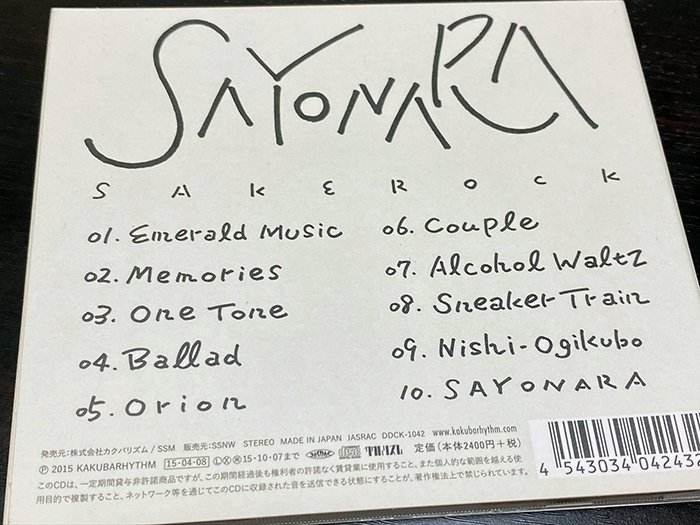 SAYONARA
SAKEROCK
01. Emerald Music
02. Memories
03. One Tone
04. Ballad
05. Orion
06. Couple
07. Alcohol Waltz
08. Sneaker Train
09. Nishi-Ogikubo
10. SAYONARA
発売元:株式会社カクバリズム / SSM 販売元:SSNW STEREO MADE IN JAPAN JASRAC DDCK-1042 www.kakubarhythm.com
Ⓟ 2015 KAKUBARHYTHM 15-04-08 Ⓛ Ⓧ Ⓡ 15・10・07まで 定価(本体2400円+税)
このCDは、一定期間貸与非許諾商品ですが、この期間経過後も権利者の許諾なく賃貸業に使用すること、また個人的な範囲を越える使
用目的で複製すること、ネットワーク等を通じてこのCDに収録された音を送信できる状態にすることが、著作権法上で禁じられています。
4 543034 042432